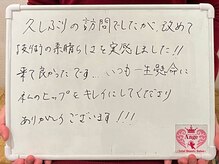 久しぶりの訪問でしたが、改めて
技術の素晴らしさを実感しました!!
来て良かったです... いつも一生懸命に
私のヒップをキレイにしてくださり
ありがとうございます!!!
Ange